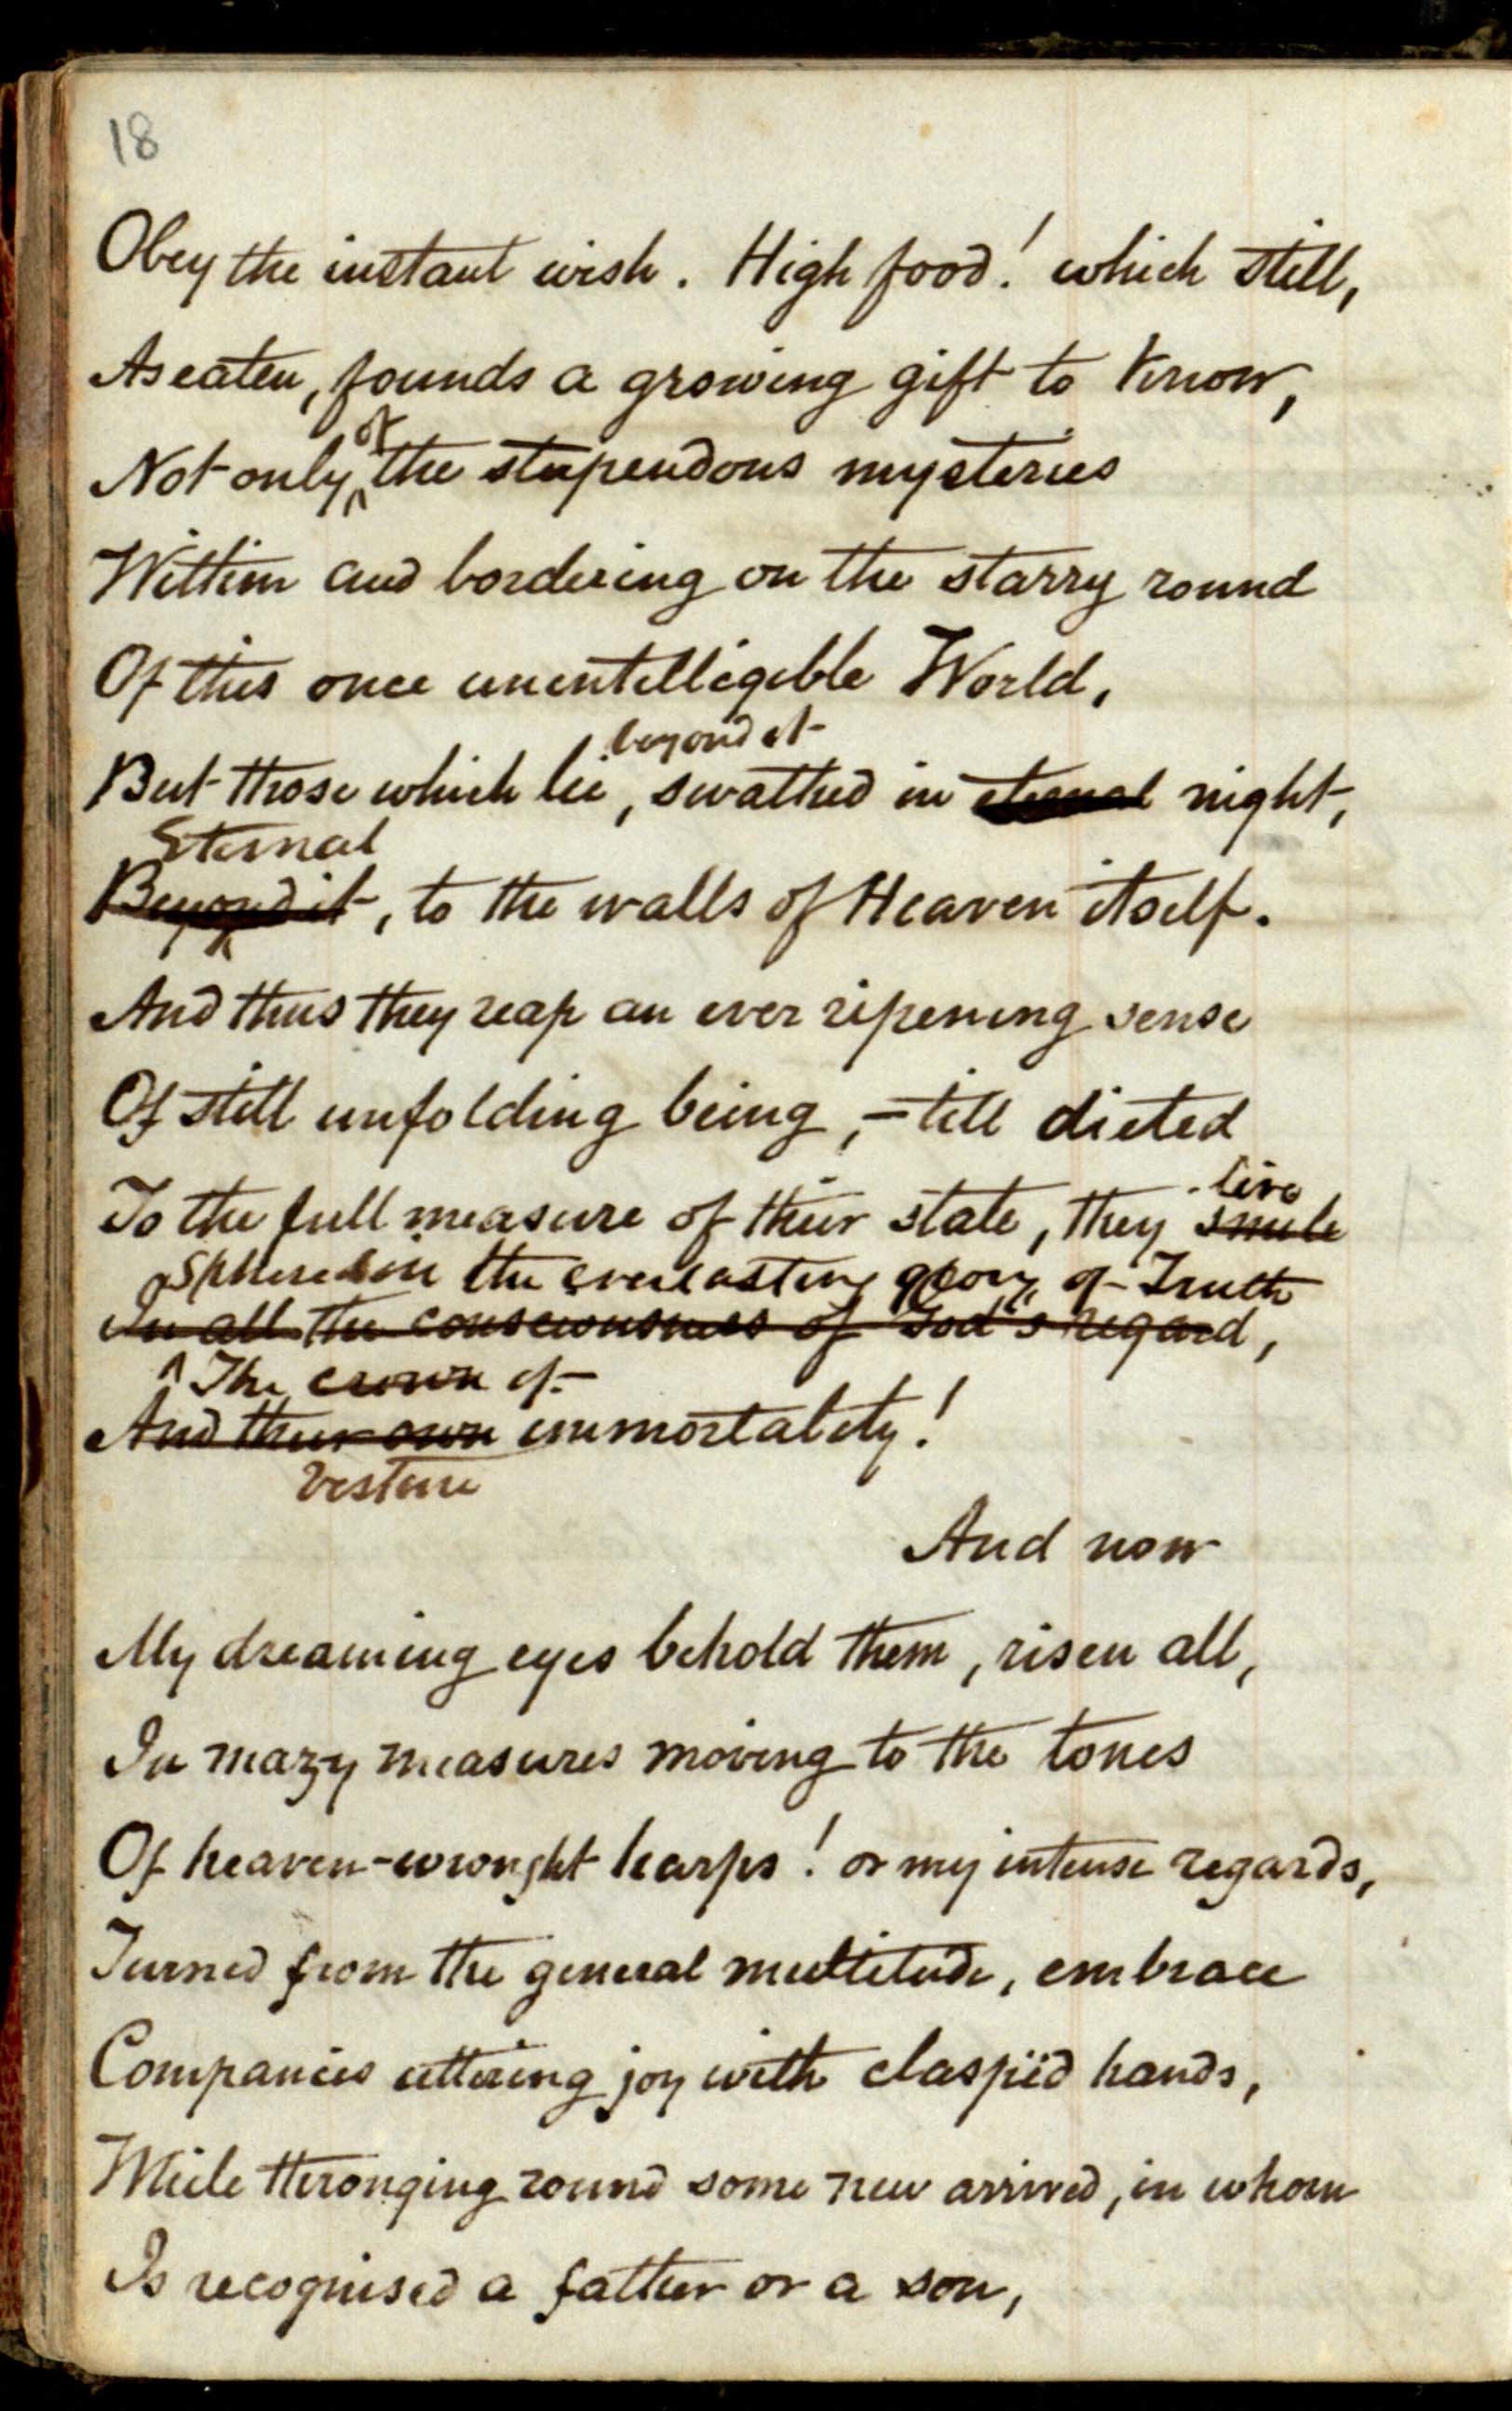 18
Obey the instant wish. High food! which still,
As eaten, founds a growing gift to know,
of
Not only the stupendous mysteries
Within and bordering on the starry round
Of this once unintelligible World,
beyond it
But those which lie, swathed in eternal night,
Eternal
Beyond it, to the walls of Heaven itself.
And thus they reap an ever ripening sense
Of still unfolding being,—till dieted
live
To the full measure of their state, they smile
Sphered in the everlasting glory of Truth
In all the consciousness of God's regard,
The crown of
And their own immortality!
Vesture
And now
My dreaming eyes behold them, risen all,
In mazy measures moving to the tones
Of heaven-wrought harps! or my intense regards,
Turned from the general multitude, embrace
Companies uttering joy with claspëd hands,
While thronging round some new arrived, in whom
Is recognised a father or a son,